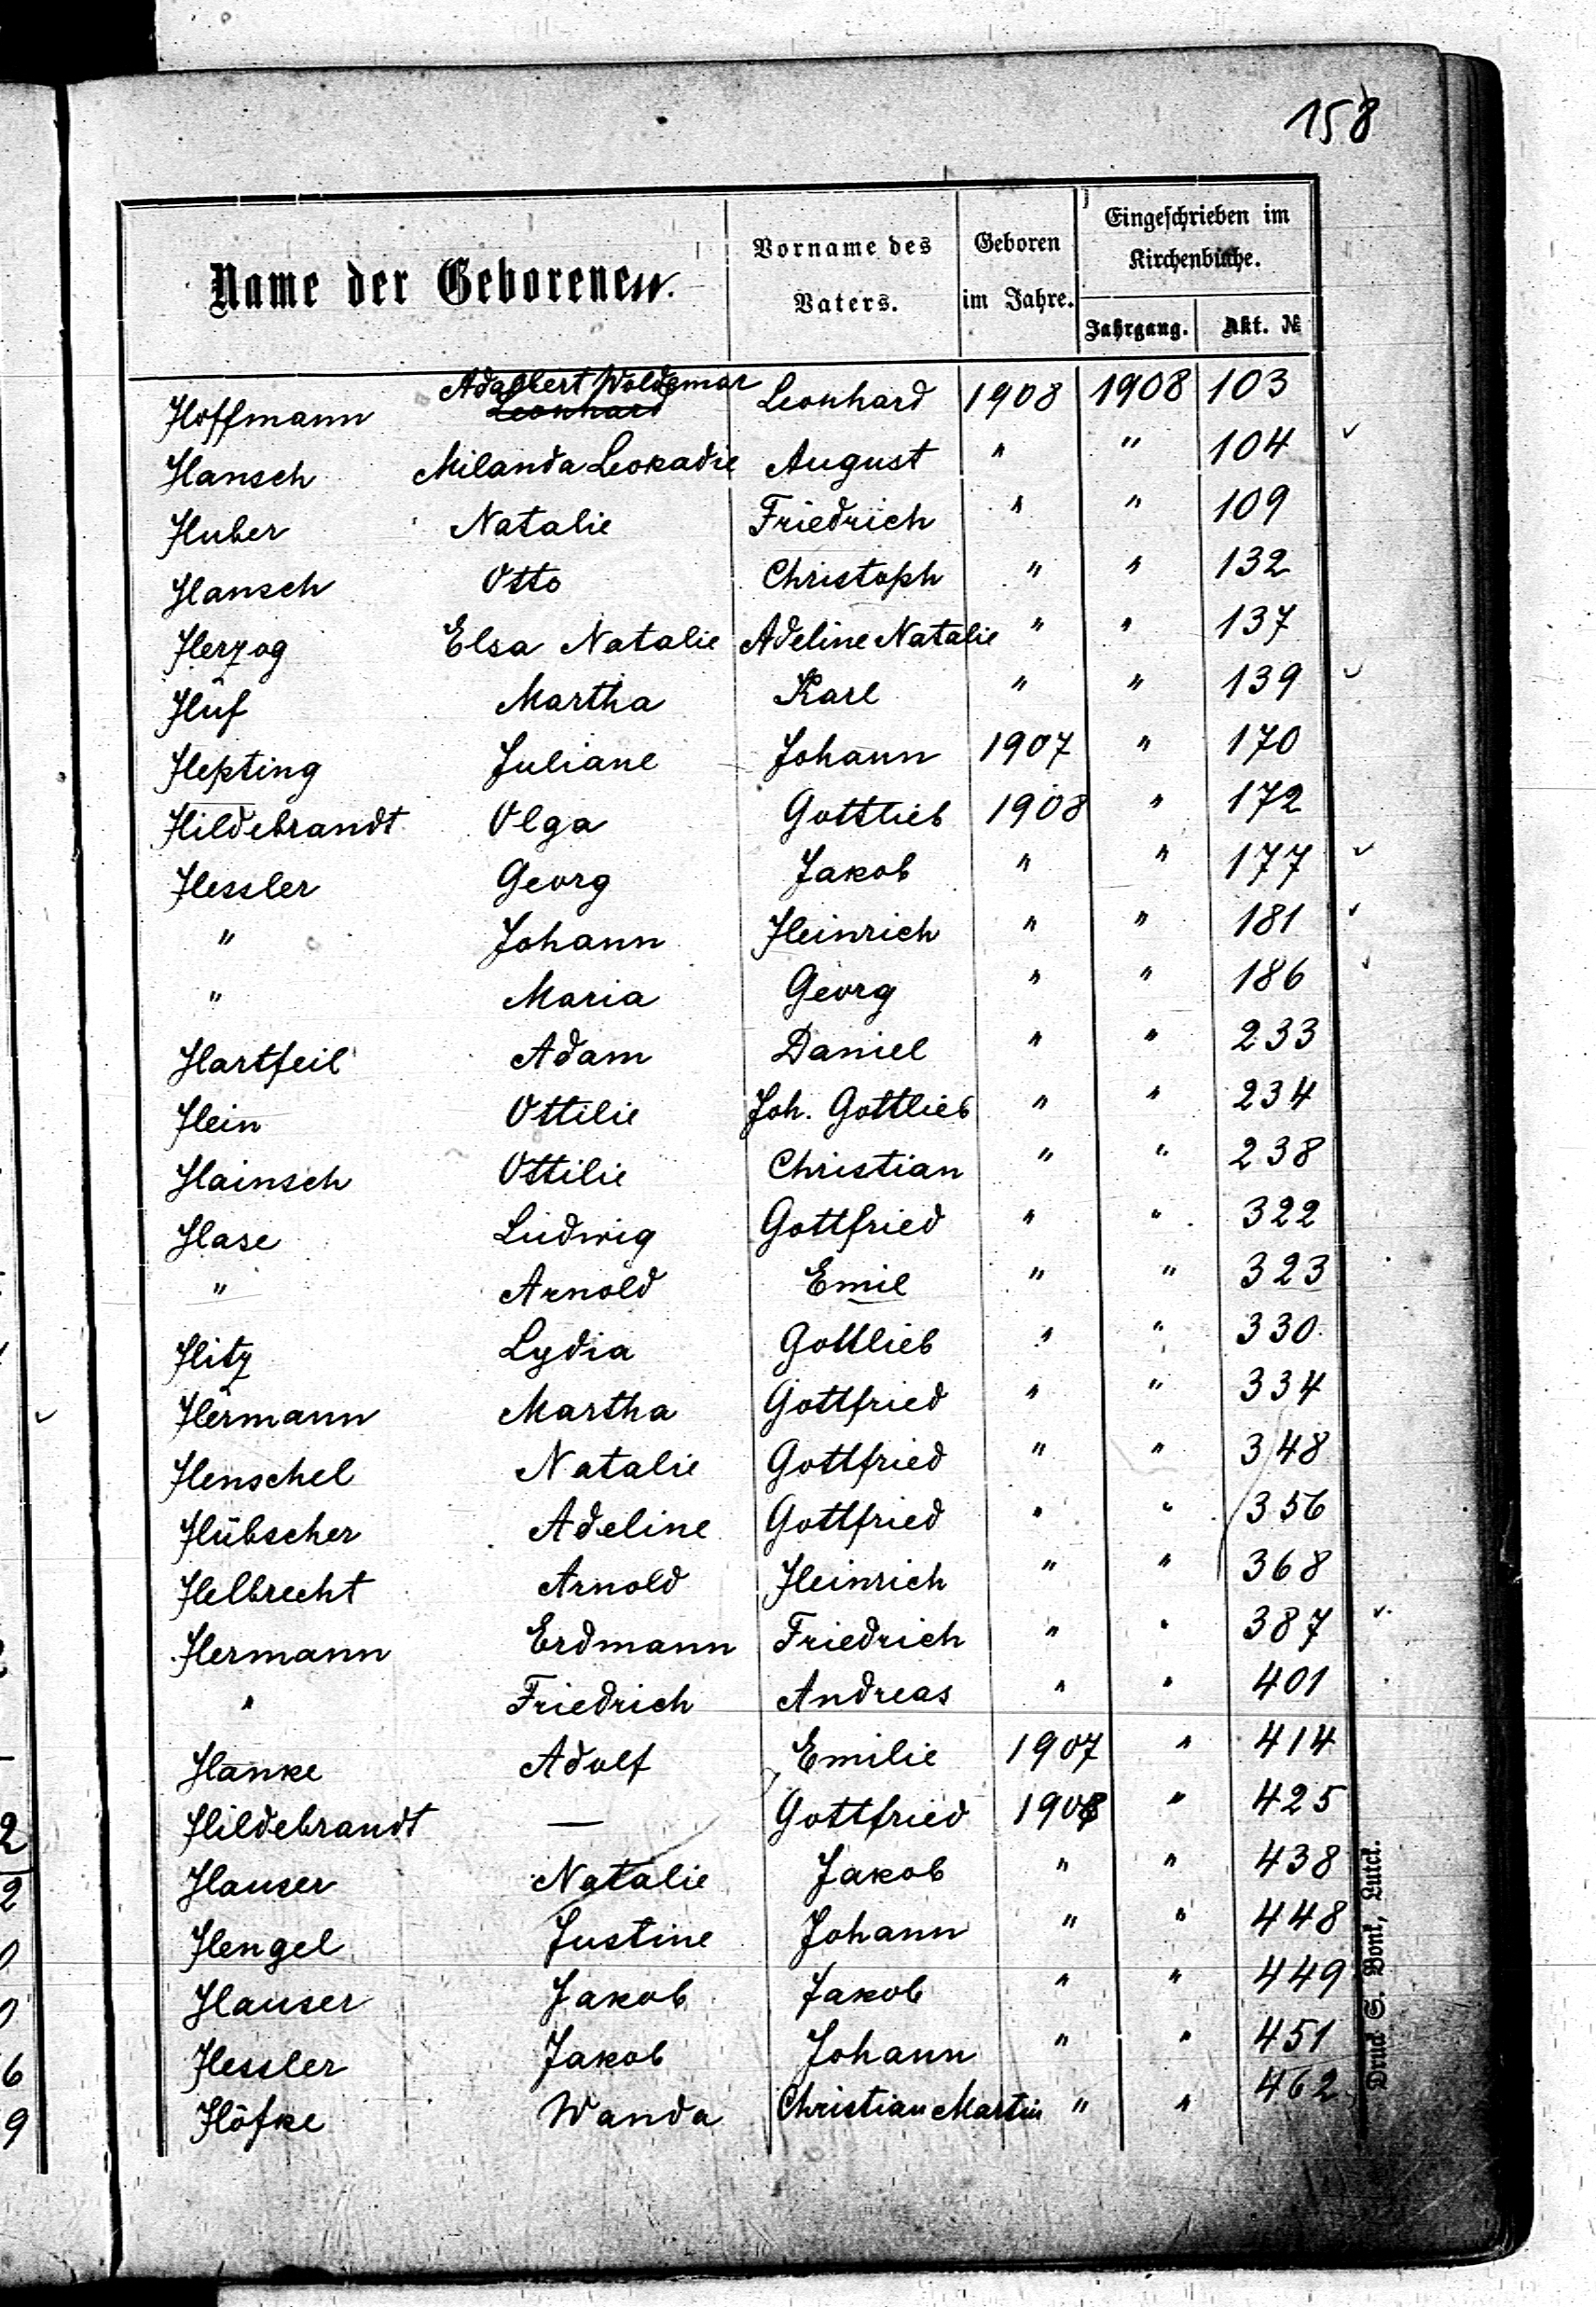 158
Name der Geborenen.
Vorname des Vaters.
Geboren im Jahre.
Eingeschrieben im Kirchenbuche.
Jahrgang. Akt. №
Hoffmann Adalbert Woldemar Leonhard Leonhard 1908 1908 103
Hansch Milanda Leokadie August " " 104
Huber Natalie Friedrich " " 109
Hansch Otto Christoph " " 132
Herzog Elsa Natalie Adeline Natalie " " 137
Hüf Martha Karl " " 139
Hepting Juliane Johann 1907 " 170
Hildebrandt Olga Gottlieb 1908 " 172
Hessler Georg Jakob " " 177
" Johann Heinrich " " 181
" Maria Georg " " 186
Hartfeil Adam Daniel " " 233
Hein Ottilie Joh. Gottlieb " " 234
Hainsch Ottilie Christian " " 238
Hase Ludwig Gottfried " " 322
" Arnold Emil " " 323
Hitz Lydia Gottlieb " " 330
Hermann Martha Gottfried " " 334
Henschel Natalie Gottfried " " 348
Hübscher Adeline Gottfried " " 356
Helbrecht Arnold Heinrich " " 368
Hermann Erdmann Friedrich " " 387
" Friedrich Andreas " " 401
Hanke Adolf Emilie 1907 " 414
Hildebrandt — Gottfried 1908 " 425
Hauser Natalie Jakob " " 438
Hengel Justine Johann " " 448
Hauser Jakob Jakob " " 449
Hessler Jakob Johann " " 451
Höfke Wanda Christian Martin " " 462
Druck S. Bonk, Lutck.